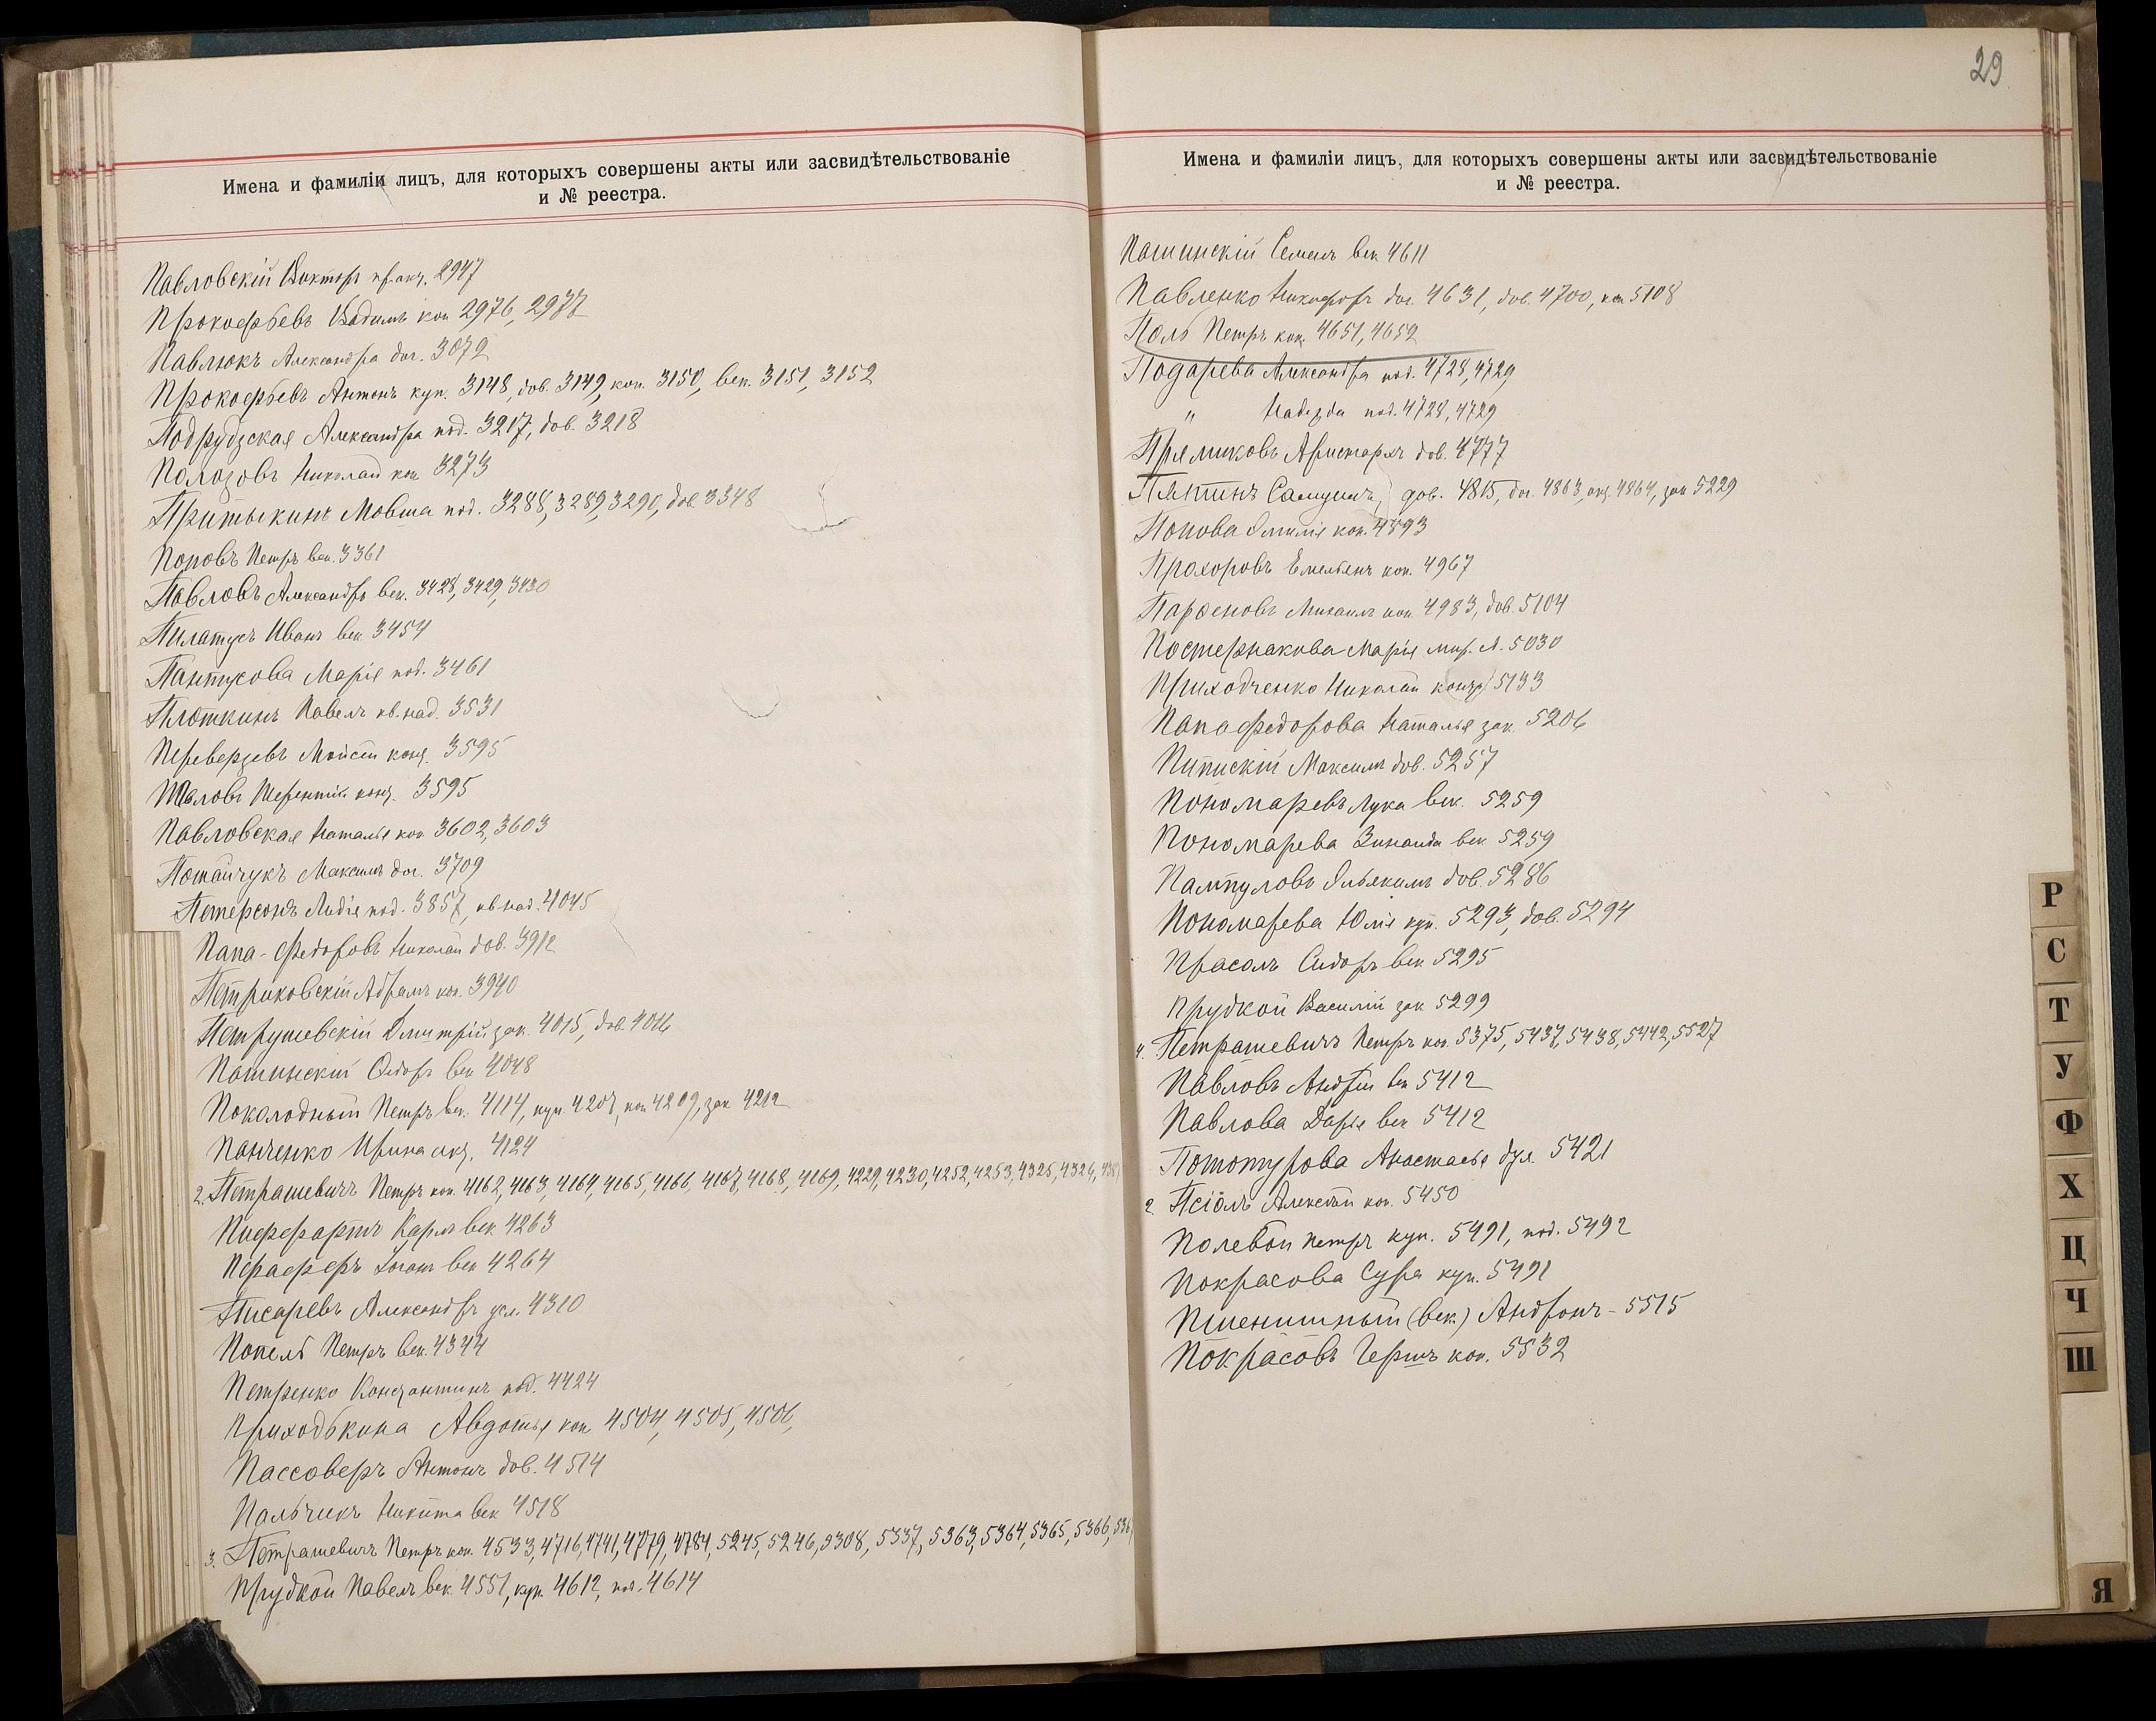 Имена и фамиліи лицъ, для которыхъ совершены акты или засвидѣтельствованіе
и № реестра.
Павловскій Викторъ 2947
Прокофьевъ Вадимъ коп 2976, 2977
Павлюкъ Александра дог. 3072
Прокофьевъ Антонъ куп. 3148, дов. 3149, коп. 3150, век. 3151, 3152
Подрудзская Александра под. 3217, дов. 3218
Полозовъ Николай коп 3273
Притыкинъ Мовша под. 3288, 3289, 3290, дов. 3348
Поповъ Петръ век. 3361
Павловъ Александръ век. 3428, 3429, 3430
Пилатусъ Иванъ век 3454
Пантусова Марія под. 3461
Плоткинъ Павелъ кв. над. 3531
Переверзевъ Мойсей 3595
Терентій 3595
Павловская Наталья коп 3602, 3603
Потайчукъ Максимъ дог. 3709
Петерсонъ Лидія под. 3857, кв над. 4045
Папа-Федоровъ Николай дов. 3912
Петриковскій Абрамъ 3940
Петрушевскій Дмитрій зак. 4015, дов. 4016
Пашинскій век 4048
Поколодный Петръ век. 4114, куп 4207, коп 4209, зак 4212
Панченко Ирина 4124
2. Петрашевичъ Петръ коп. 4162, 4163, 4164, 4165, 4166, 4167, 4168, 4169, 4229, 4230, 4252, 4253, 4325, 4326,
Пифпартъ Карлъ век 4263
век 4264
Писаревъ Александръ 4310
Попель Петръ век. 4344
Петренко Константинъ под. 4424
Приходькина Авдотья коп 4504, 4505, 4506,
Пассоверъ Антонъ дов. 4514
Пальчикъ Никита век 4518
3. Петрашевичъ Петръ коп. 4533, 4716, 4741, 4779, 4784, 5245, 5246, 5308, 5337, 5363, 5364, 5365, 5366,
Прудкой Павелъ век 4551, куп. 4612, 4614
29
Имена и фамиліи лицъ, для которыхъ совершены акты или засвидѣтельствованіе
и № реестра.
Пашинскій Семенъ век 4611
Павленко Никифоръ дог. 4631, дов. 4700, коп 5108
Поль Петръ коп. 4651, 4652
Подарева Александра под. 4728, 4729
" Надежда под. 4728, 4729
Прямиковъ Аристархъ дов. 4777
Пятинъ Самуилъ, дов. 4815, дог. 4863, 4864, зак 5229
Попова Эмилія коп. 4893
Прохоровъ Емельянъ коп. 4967
Парфеновъ Михаилъ коп 4983, дов. 5104
Постернакова Марія 5030
Приходченко Николай 5133
Папафедорова Наталья зак. 5206
Максимъ дов. 5257
Пономаревъ Лука век. 5259
Пономарева Зинаида век 5259
Пампуловъ Эльякимъ дов. 5286
Пономарева Юлія куп. 5293, дов. 5294
Прасолъ Сидоръ век 5295
Прудкой Василій зак 5299
4. Петрашевичъ Петръ коп. 5375, 5437, 5438, 5442, 5527
Павловъ Андрей век 5412
Павлова Дарья век 5412
Анастасья 5421
2. Псіолъ Алексѣй коп. 5450
Полевой Петръ куп. 5491, под. 5492
Покрасова Сура куп. 5491
Пшеничный (век) Андронъ - 5515
Покрасовъ Гершъ коп. 5532
Р
С
Т
У
Ф
Х
Ц
Ч
Ш
Я